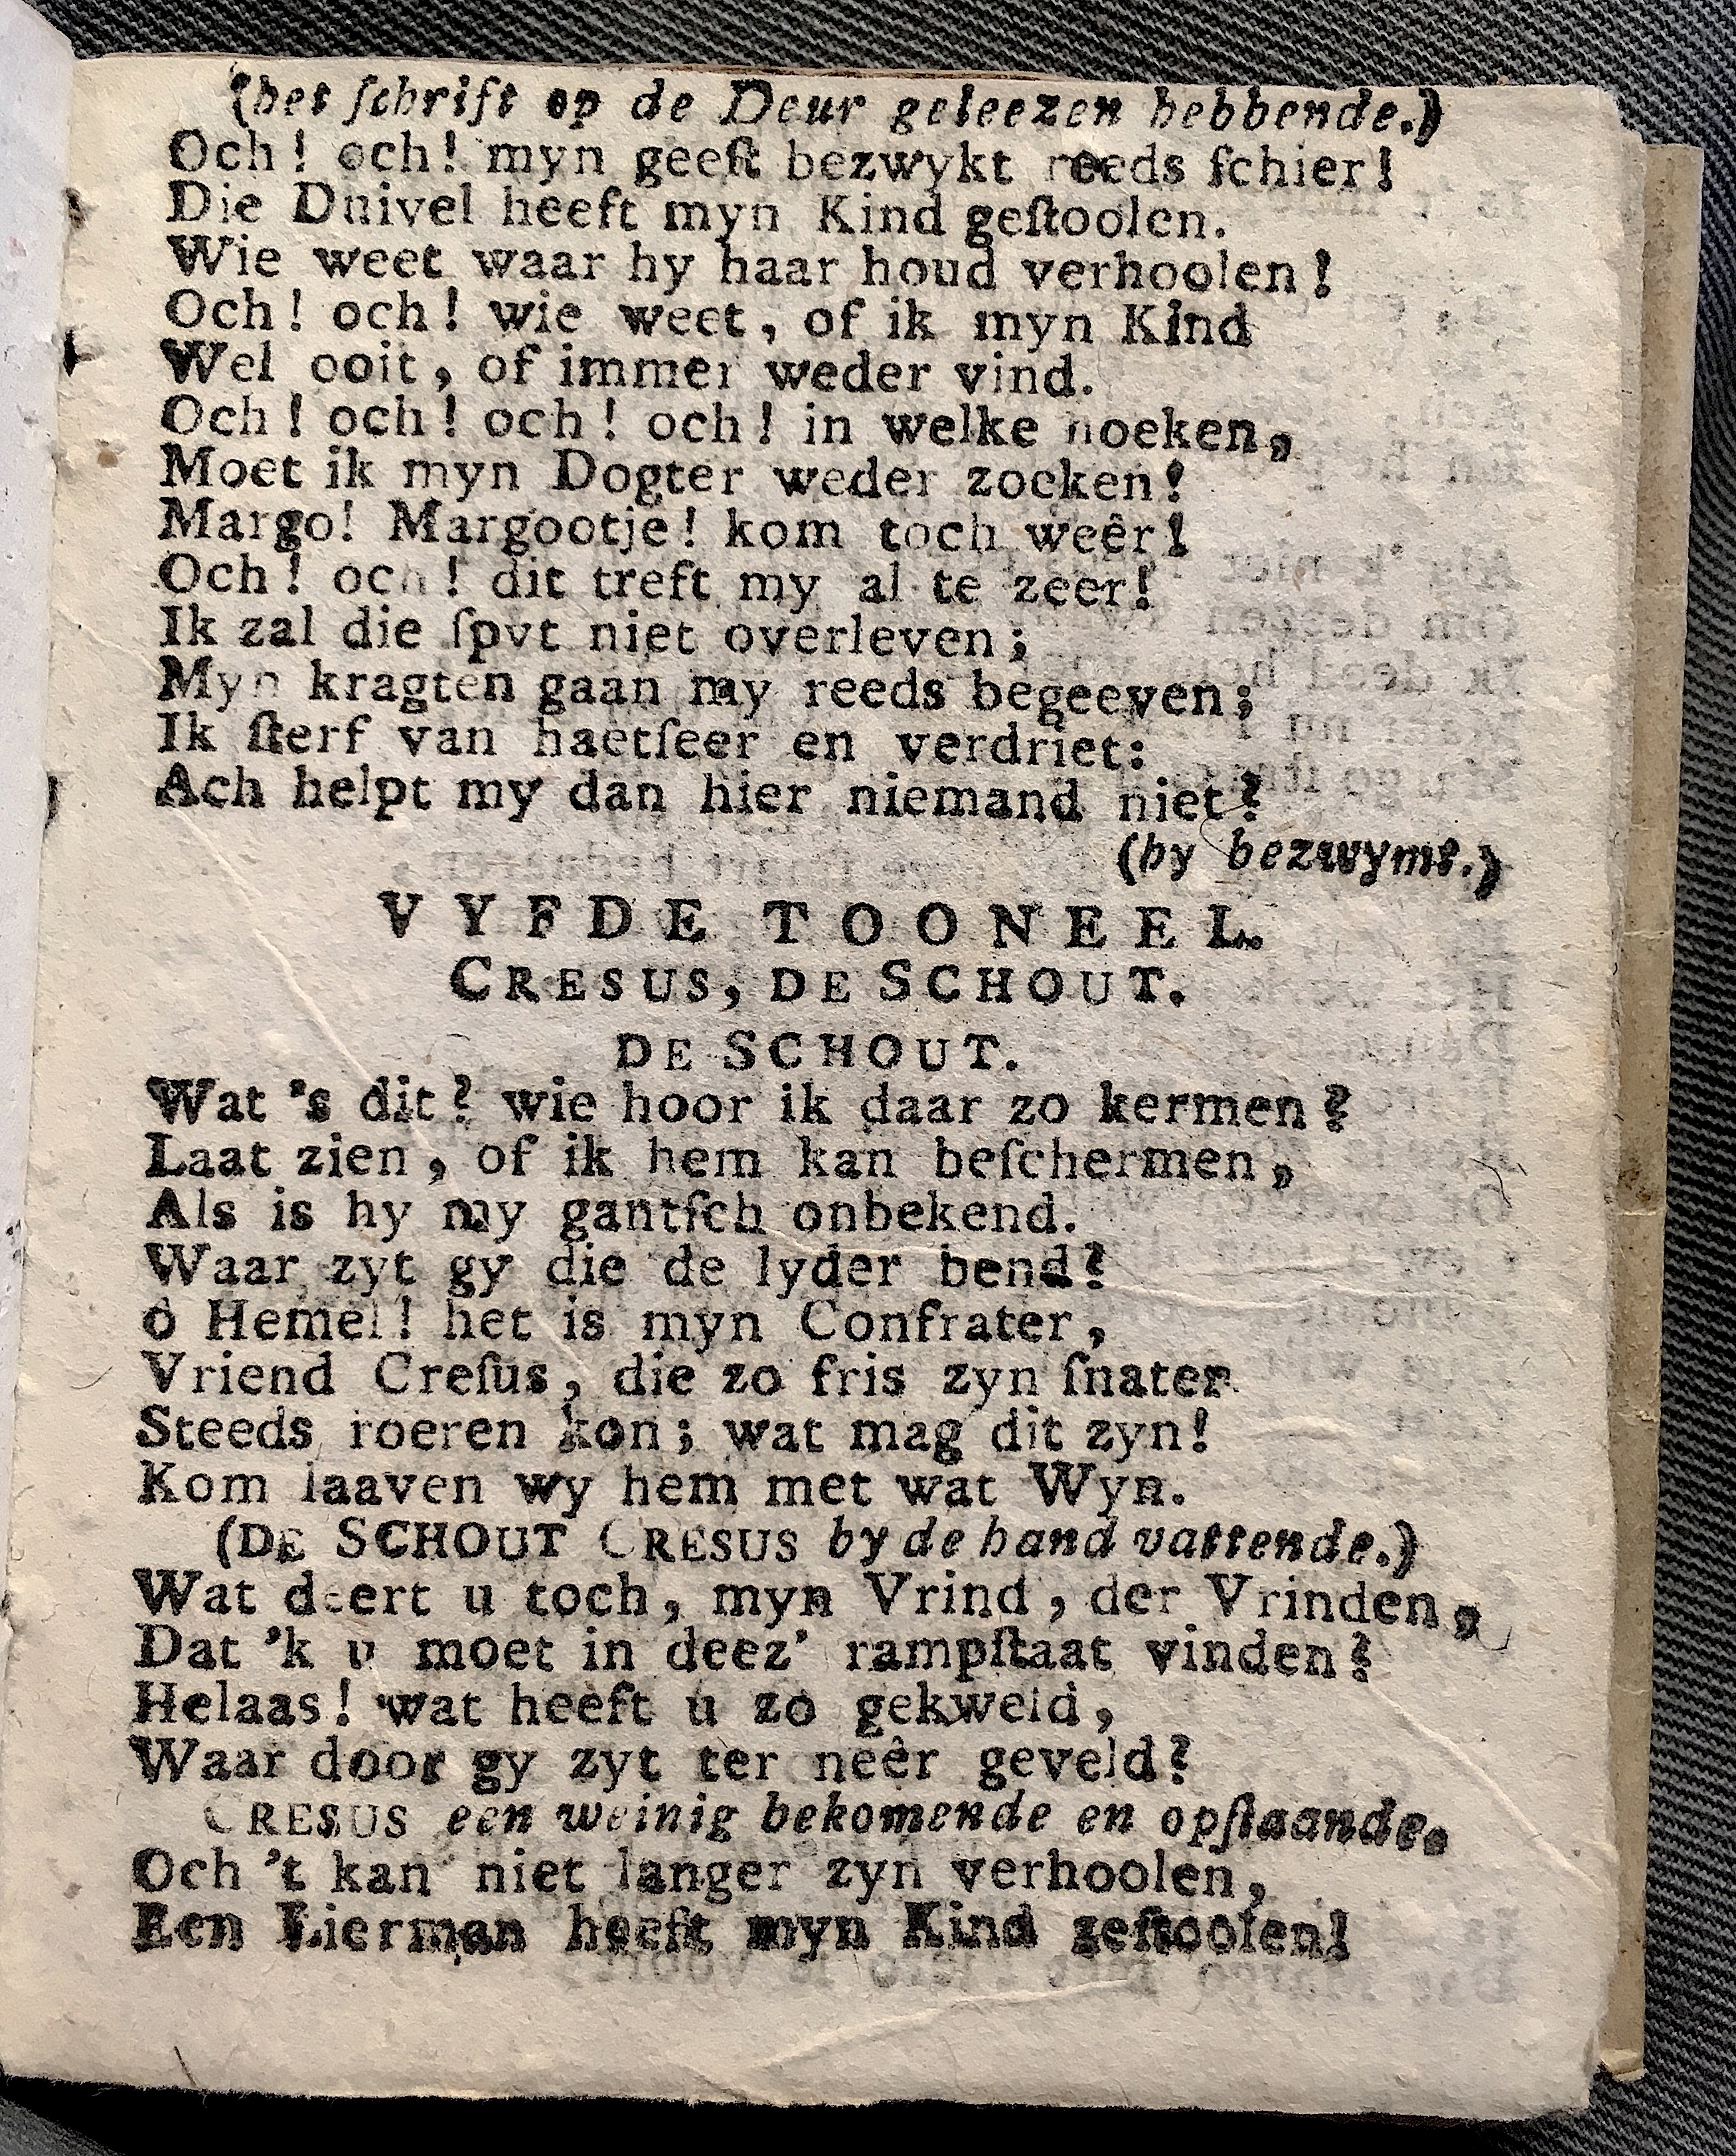 (het ſchrift op de Deur geleezen hebbende.)
Och! och! myn geeſt bezwykt reeds ſchier!
Die Duivel heeft myn Kind geſtoolen.
Wie weet waar hy haar houd verhoolen!
Och! och! wie weet, of ik myn Kind
Wel ooit, of immer weder vind.
Och! och! och! och! in welke hoeken,
Moet ik myn Dogter weder zoeken!
Margo! Margootje! kom toch weêr!
Och! och! dit treft my al te zeer!
Ik zal die ſpyt niet overleven;
Myn kragten gaan my reeds begeeven;
Ik ſterf van haetſeer en verdriet:
Ach helpt my dan hier niemand niet?
(hy bezwymt.)
VYFDE TOONEEL.
CRESUS, DE SCHOUT.
DE SCHOUT.
Wat 's dit? wie hoor ik daar zo kermen?
Laat zien, of ik hem kan beſchermen,
Als is hy my gantſch onbekend.
Waar zyt gy die de lyder bend?
ô Hemel! het is myn Confrater,
Vriend Creſus, die zo fris zyn ſnater
Steeds roeren kon; wat mag dit zyn!
Kom laaven wy hem met wat Wyn.
(DE SCHOUT CRESUS by de hand vattende.)
Wat deert u toch, myn Vrind, der Vrinden,
Dat 'k u moet in deez' rampſtaat vinden?
Helaas! wat heeft u zo gekweld,
Waar door gy zyt ter neêr geveld?
CRESUS een weinig bekomende en opſtaande.
Och 't kan niet langer zyn verhoolen,
Een Lierman heeft myn Kind geſtoolen!